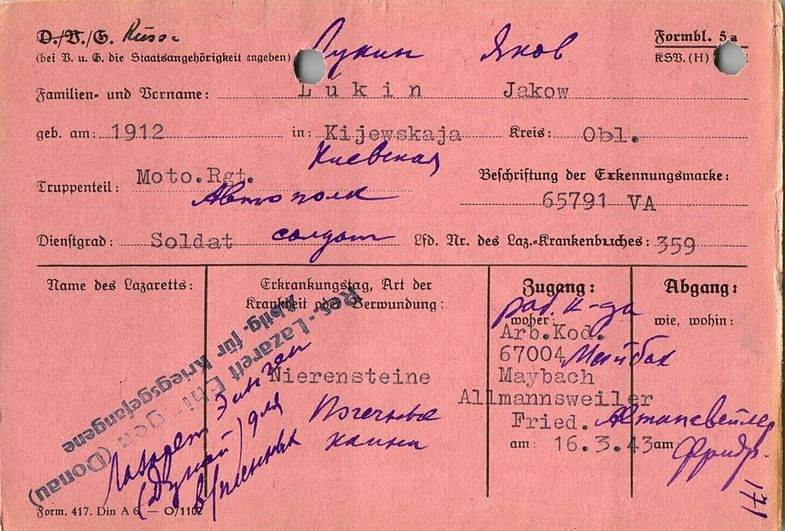 O./V./G. Russe
Formbl. 5a
(bei V. u. G. die Staatsangehörigkeit angeben) Лукин Яков
KSV. (H)
Familien- und Vorname: Lukin Jakow
geb. am: 1912 in: Kijewskaja Kreis: Obl.
Киевская
Truppenteil: Moto.Rgt.
Автополк
Beschriftung der Erkennungsmarke:
65791 VA
Dienstgrad: Soldat солдат Lfd. Nr. des Laz.-Krankenbuches: 359
Name des Lazaretts:
Res.-Lazarett Ehingen (Donau)
Abtlg. für Kriegsgefangene
Лазарет Эинген
(Дунай) для
в/пленных
Erkrankungstag, Art der
Krankheit oder Verwundung:
Nierensteine
Почечные
камни
Zugang:
раб. к-да
woher:
Arb.Kod.
67004 Майбах
Maybach
Allmannsweiler
Fried. Алмансвейлер
am: 16.3.43
Фридр.
Abgang:
wie, wohin:
am
171
Form. 417. Din A 6. — O/1102